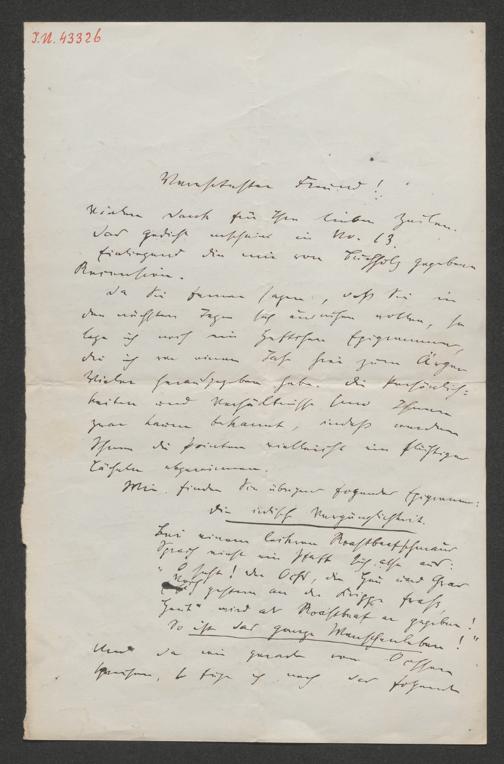 I.N. 43326
Verehrtester Freund!
Vielen Dank für Ihre lieben Zeilen.
Das Gedicht erscheint in No. 13.
die mir von Buchholz gegebene
Recension.
Da Sie ferner sagen, daß Sie in
den nächsten Tagen sich wollen, so
lege ich noch ein Heftchen Epigramme,
die ich vor einem Jahr hier zum Ärger
Vieler herausgegeben habe. Die Persönlich-
keiten und Verhältnisse sind Ihnen
zwar kaum bekannt, indeß werden
Ihnen die Pointen vielleicht ein flüchtiges
Lächeln abgewinnen.
Wie finden Sie übrigens folgendes Epigramm:
Die irdische Vergänglichkeit.
Bei einem leckeren Roastbeefschmaus
Sprach einst ein Pfaff sich also aus:
"O seht! der Ochs, der Heu und Gras
Noch gestern an der Krippe fraß,
Heut' wird als Roastbeef er gegeben!
So ist das ganze Menschenleben!"
Und da wir gerade von Ochsen
sprechen, so füge ich noch das folgende